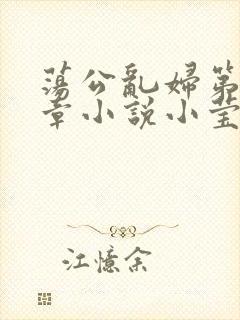 蕩公亂婦第
章小說小瑩
江憶余